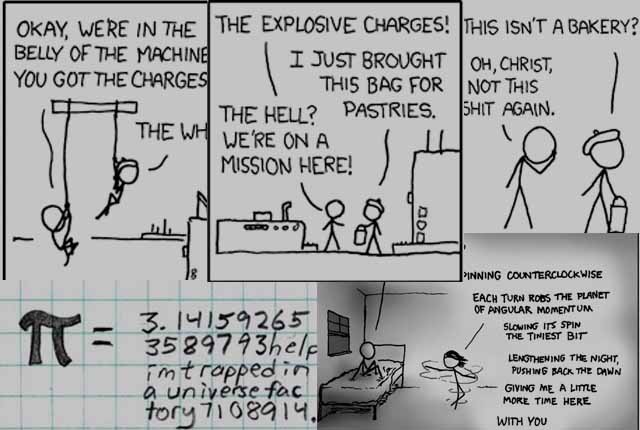 OKAY, WE'RE IN THE
BELLY OF THE MACHINE
YOU GOT THE CHARGES
THE WH
THE EXPLOSIVE CHARGES!
I JUST BROUGHT
THIS BAG FOR
PASTRIES.
THE HELL?
WE'RE ON A
MISSION HERE!
THIS ISN'T A BAKERY?
OH, CHRIST,
NOT THIS
SHIT AGAIN.
π = 3.14159265
3589793help
imtrapped in
a universe fac
tory7108914.
PINNING COUNTERCLOCKWISE
EACH TURN ROBS THE PLANET
OF ANGULAR MOMENTUM
SLOWING ITS SPIN
THE TINIEST BIT
LENGTHENING THE NIGHT,
PUSHING BACK THE DAWN
GIVING ME A LITTLE
MORE TIME HERE
WITH YOU